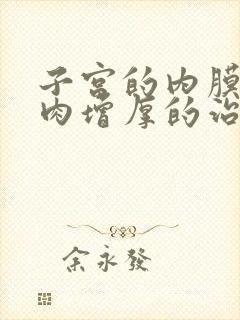 子宫的内膜
肉增厚的治
余永發